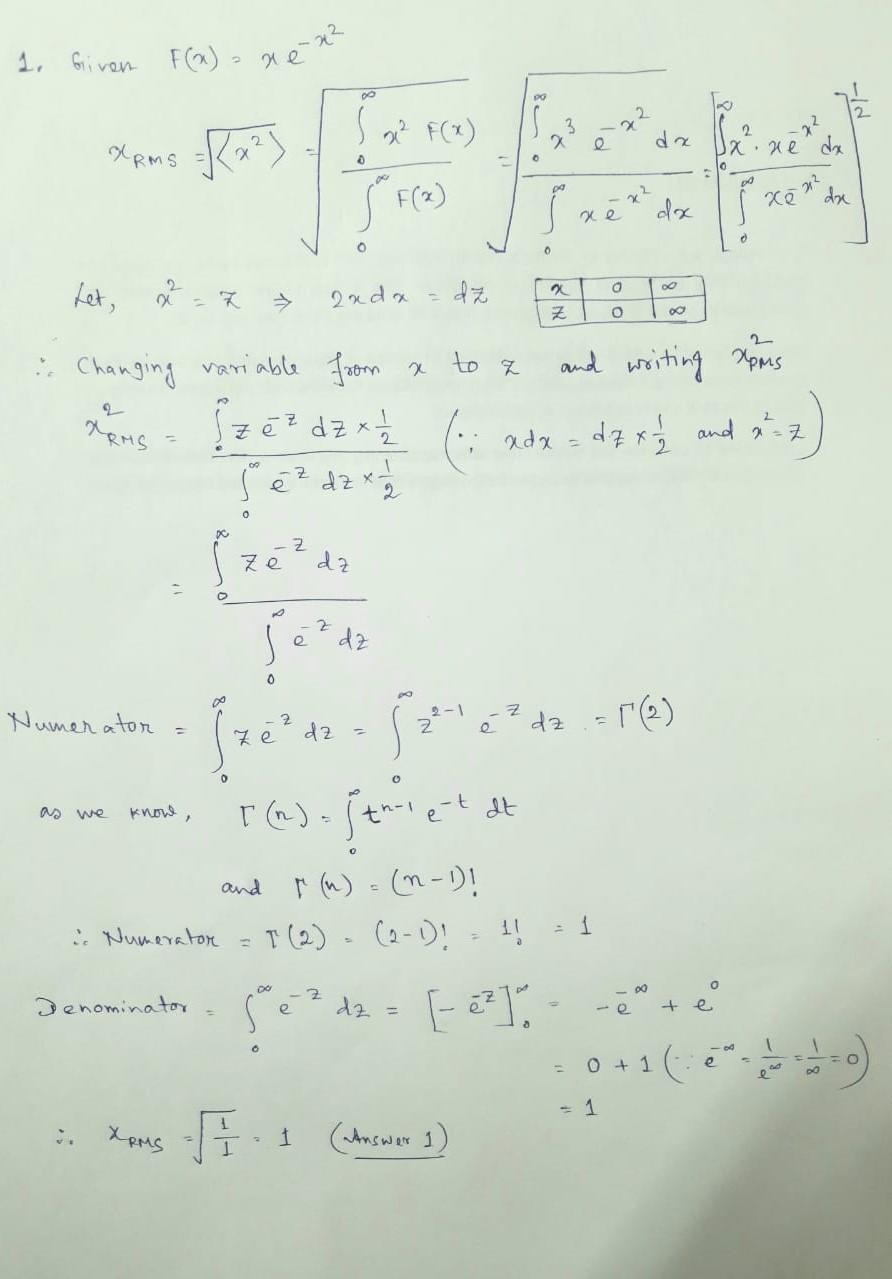 1. Given F(x) = x e^{-x^2}
x_{RMS} = √⟨x^2⟩ = √(∫_0^∞ x^2 F(x) / ∫_0^∞ F(x)) = √(∫_0^∞ x^3 e^{-x^2} dx / ∫_0^∞ x e^{-x^2} dx) = [∫_0^∞ x^2 . x e^{-x^2} dx / ∫_0^∞ x e^{-x^2} dx]^{1/2}
Let, x^2 = z ⇒ 2x dx = dz
x 0 ∞
z 0 ∞
∴ Changing variable from x to z and writing x^2_{RMS}
x^2_{RMS} = ∫_0^∞ z e^{-z} dz × 1/2 / ∫_0^∞ e^{-z} dz × 1/2 (∵ xdx = dz × 1/2 and x^2 = z)
= ∫_0^∞ z e^{-z} dz / ∫_0^∞ e^{-z} dz
Numerator = ∫_0^∞ z e^{-z} dz = ∫_0^∞ z^{2-1} e^{-z} dz = Γ(2)
as we know, Γ(n) = ∫_0^∞ t^{n-1} e^{-t} dt
and Γ(n) = (n-1)!
∴ Numerator = Γ(2) = (2-1)! = 1! = 1
Denominator = ∫_0^∞ e^{-z} dz = [-e^{-z}]_0^∞ = -e^{-∞} + e^0
= 0 + 1 (∵ e^{-∞} = 1/e^∞ = 1/∞ = 0)
= 1
∴ x_{RMS} = √(1/1) = 1 (Answer 1)